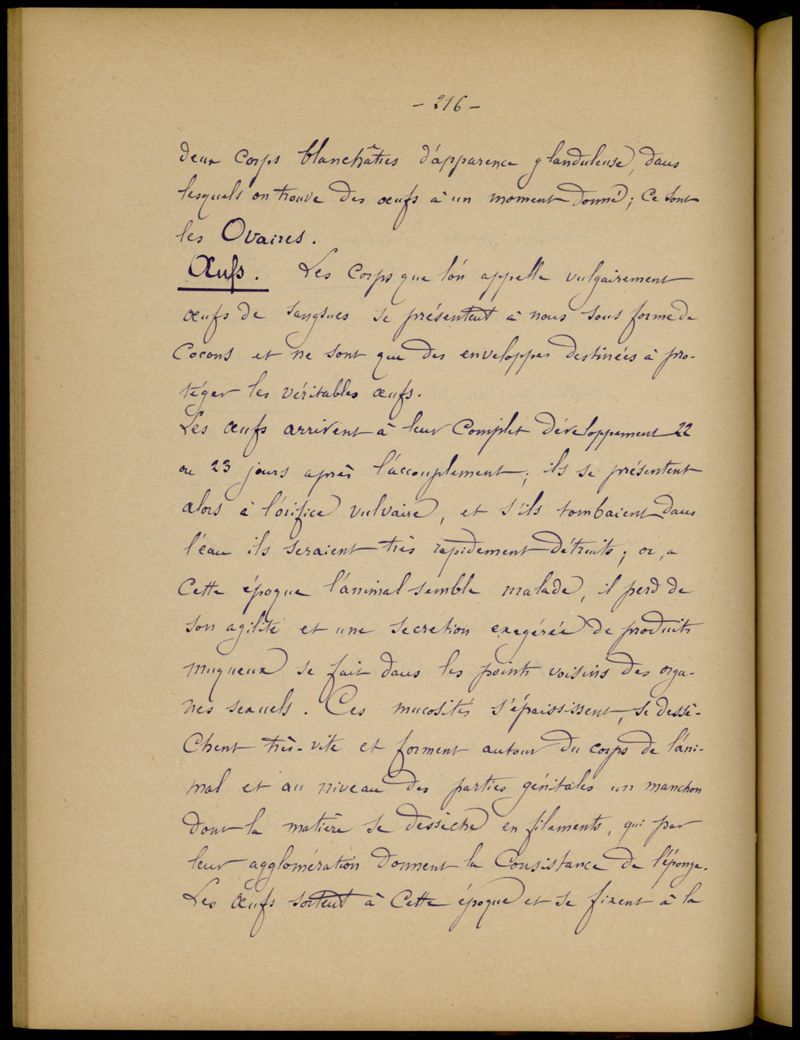 - 216 -
deux Corps blanchâtres d'apparence glanduleuse, dans
lesquels on trouve des œufs à un moment donné; Ce sont
les Ovaires.
Œufs. Les Corps que l'on appelle vulgairement
œufs de sangsues se présentent à nous sous forme de
Cocons et ne sont que des enveloppes destinées à pro-
téger les véritables œufs.
Les œufs arrivent à leur Complet développement 22
ou 23 jours après l'accouplement; ils se présentent
alors à l'orifice vulvaire, et s'ils tombaient dans
l'eau ils seraient très rapidement détruits; or, a
Cette époque l'animal semble malade, il perd de
son agilité et une secretion exagérée de produits
muqueux se fait dans les points voisins des orga-
nes sexuels. Ces mucosités s'épaississent, se dessè-
Chent très-vite et forment autour du corps de l'ani-
mal et au niveau des parties génitales un manchon
dont la matière se dessèche en filaments, qui par
leur agglomération donnent la Consistance de l'éponge.
Les Œufs sortent à Cette époque et se fixent à la